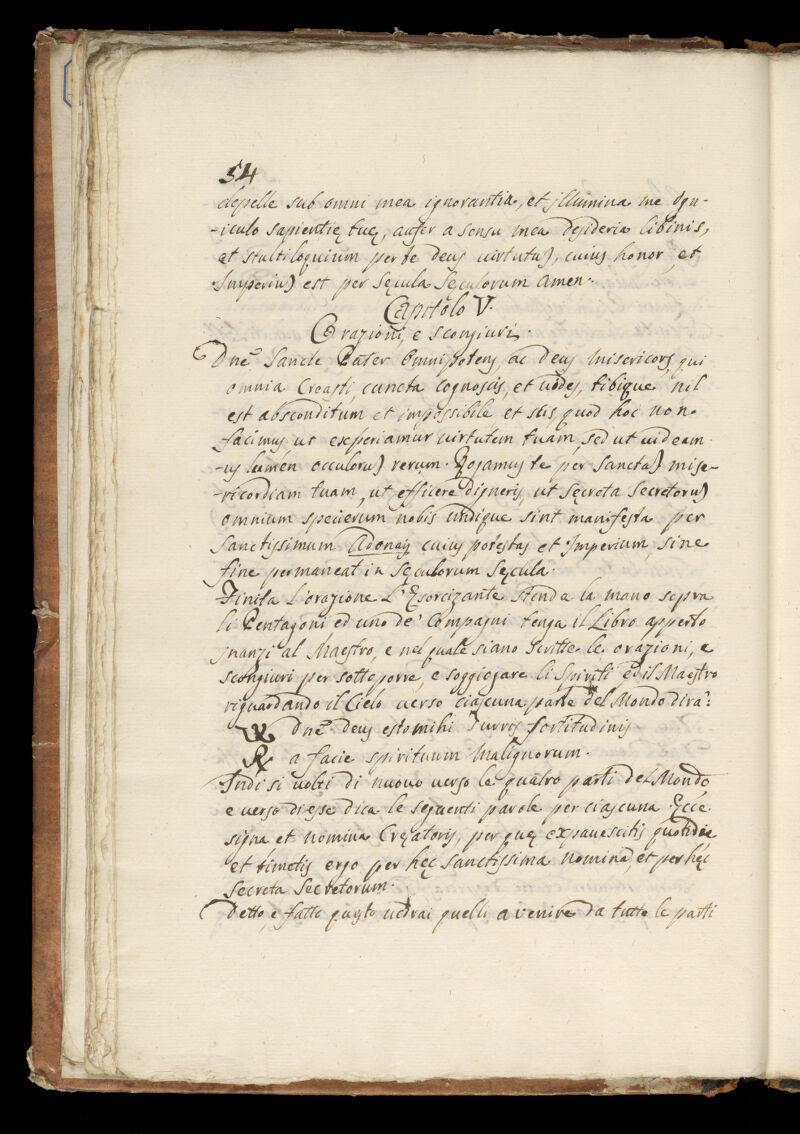 54
depelle sub omni mea ignorantia, et jllumina me Ign-
-iculo sapientię tuę, aufer a sensu mea desideria libinis,
et stultiloquium per te deus uirtutu), cuius honor, et
Imperiu) est per Sęcula Sęculorum Amen.
Capitolo V.
Orazioni, e scongiuri.
Dne͂ Sancte Pater Omnipotens, ac Deus Misericors, qui
omnia Creasti, cuncta Cognoscis, et uides, tibique nil
est absconditum et impossibile et scis, quod hoc non
facimus ut experiamur uirtutem tuam, sed ut uideam-
-us lumen occuloru) rerum. Rogamus te per Sancta) mise-
-ricordiam tuam, ut efficere digneris, ut Sęcreta Secretoru)
omnium specierum nobis undique sint manifesta per
Sanctissimum Adonay cuius potestas et Imperium, sine
fine permaneat in Sęculorum Sęcula.
Finita l'orazione L'Esorcizante stenda la mano sopra
li Pentagoni ed uno de' Compagni tenga il Libro apperto
jnanzi al Maestro, e nel quale siano scritte le orazioni, e
scongiuri per sottoporre, e soggiogare li Spiriti ed il Maestro
riguardando il Cielo uerso ciascuna parte del Mondo dira:
V Dne͂ Deus esto mihi Turris fortitudinis
R a facie spirituum Malignorum.
Indi si uolti di nuouo uerso le quatro parti del Mondo
e uerso di esse dica le seguenti parole per ciascuna. Ecce
signa et nomina Creatoris, per quę expauescitis quotidie
et timetis ergo per hęc Sanctissima nomina, et per hęc
Secreta Secretorum.
Detto, e fatto questo uedrai quelli a venire da tutte le parti